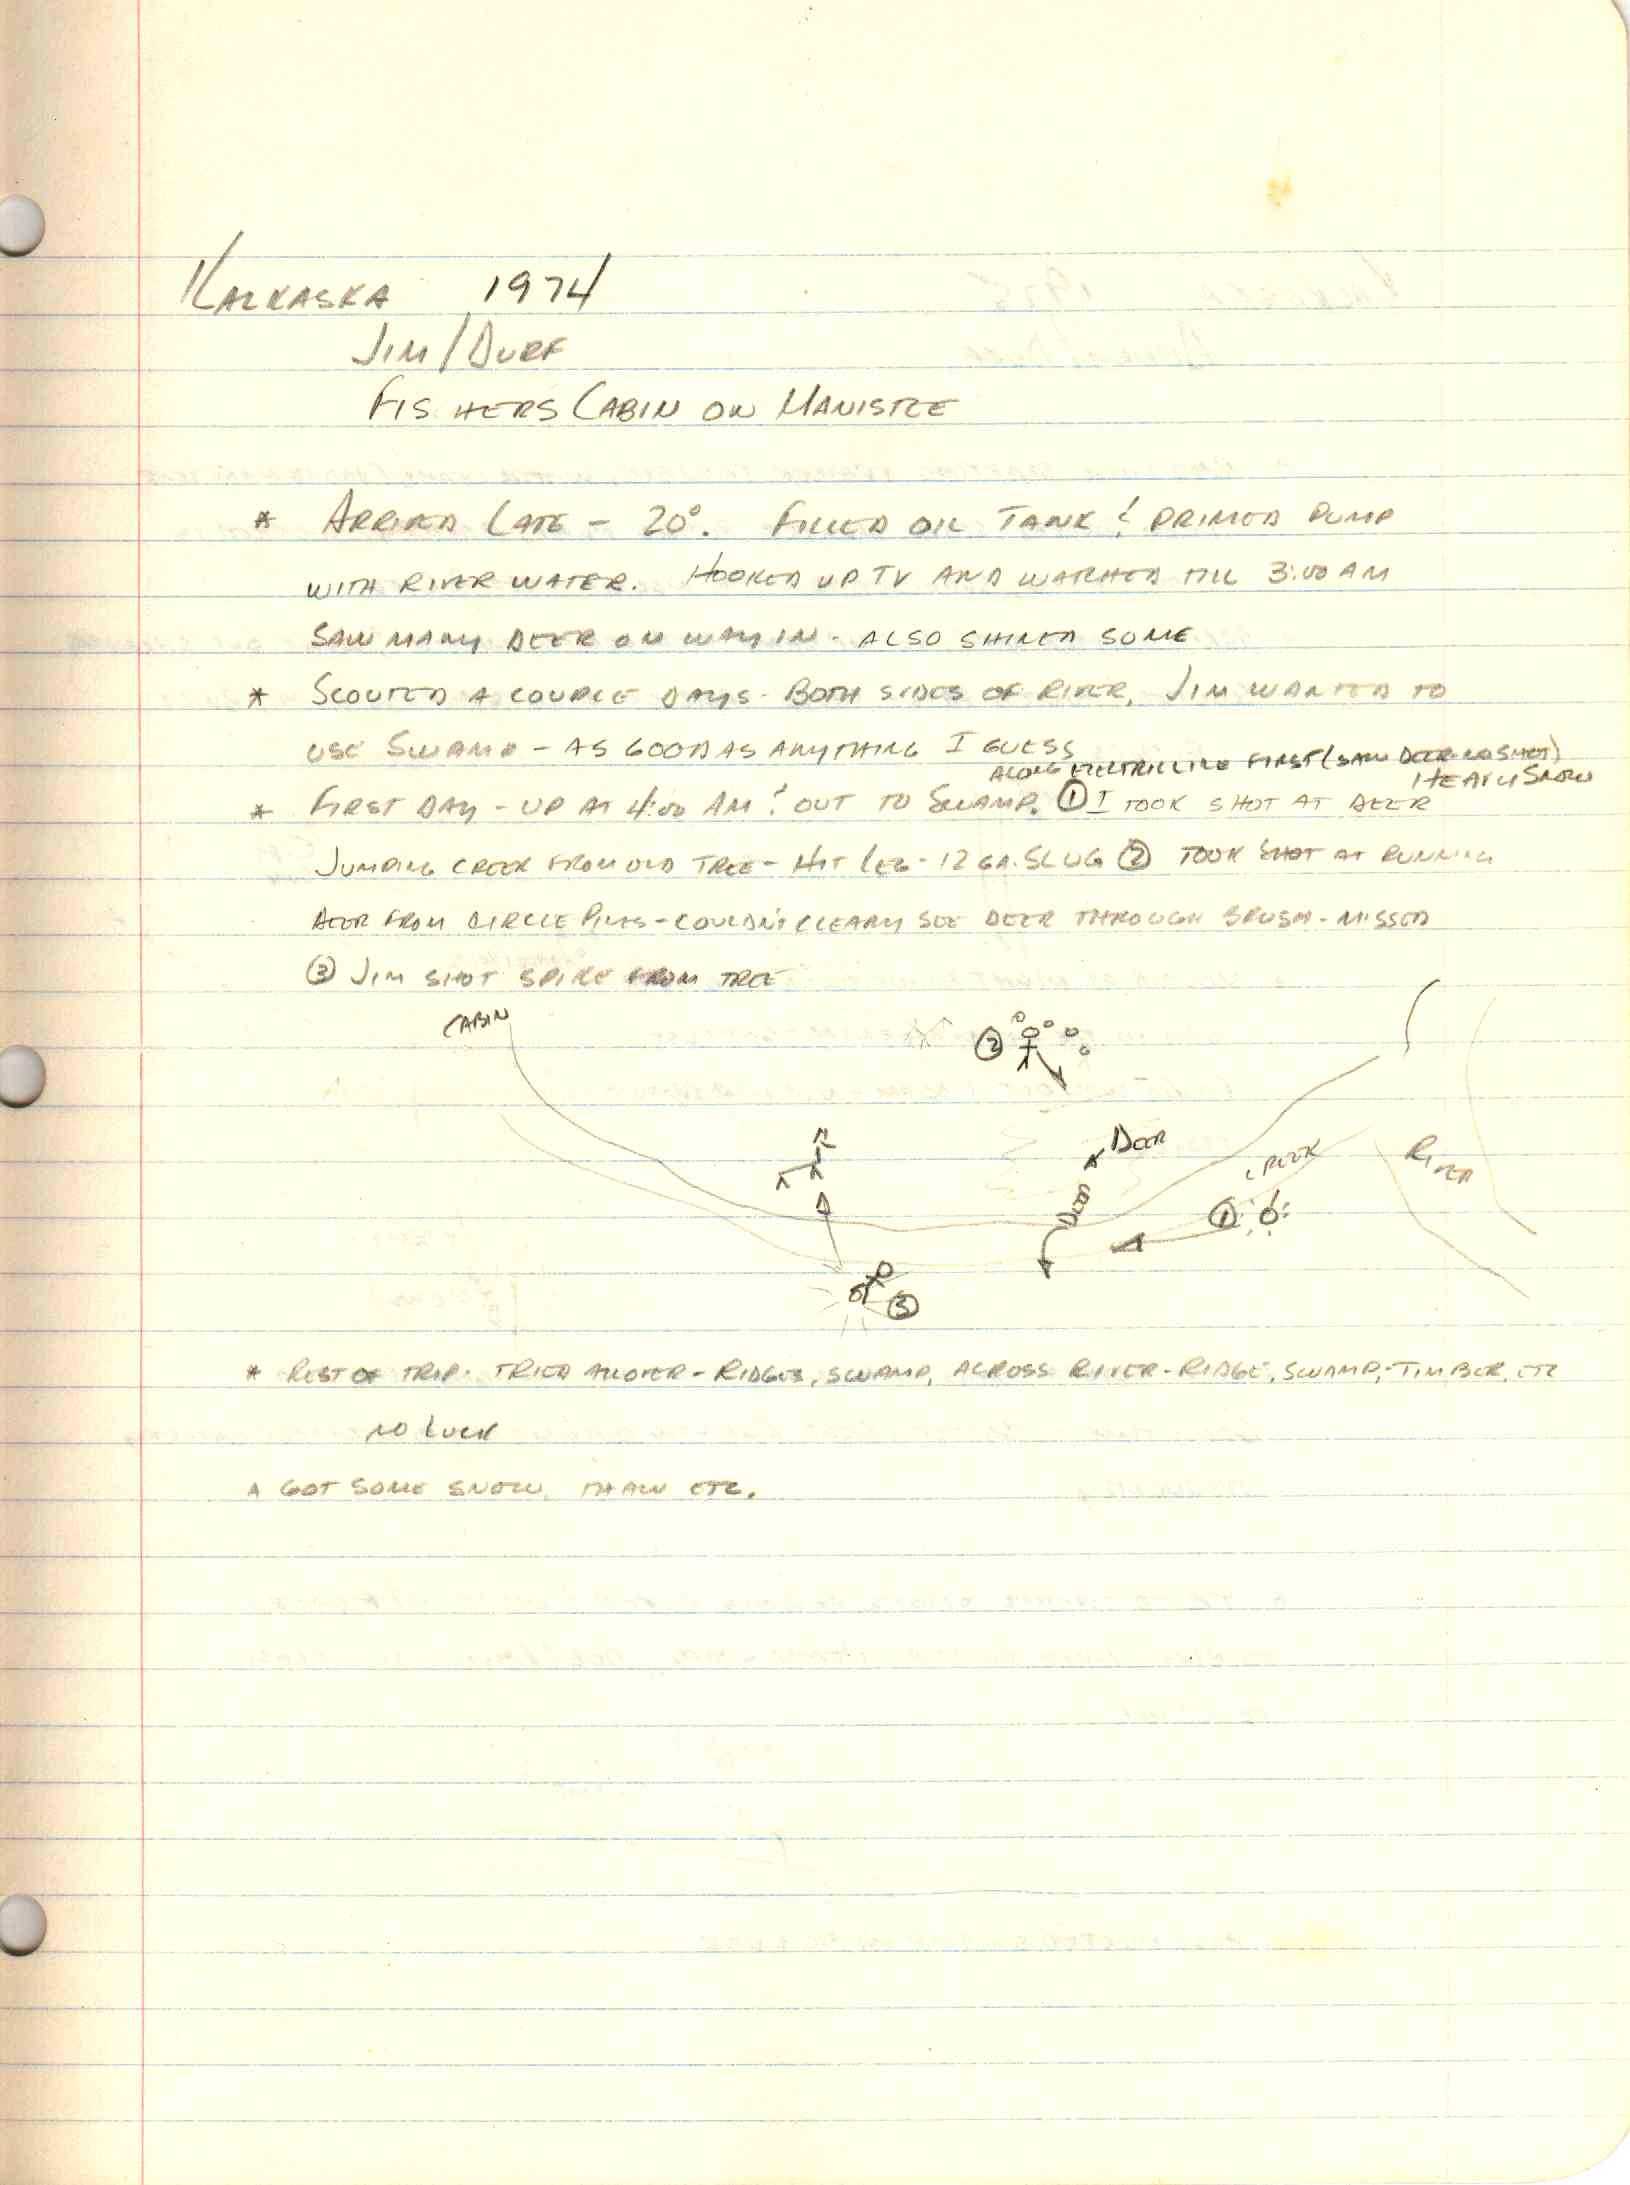 KALKASKA 1974
JIM/DURF
FISHERS CABIN ON MANISTEE
* ARRIVED LATE - 20°. FILLED OIL TANK & PRIMED PUMP
WITH RIVER WATER. HOOKED UP TV AND WATCHED TILL 3:00 AM
SAW MANY DEER ON WAY IN - ALSO SHINED SOME
* SCOUTED A COUPLE DAYS - BOTH SIDES OF RIVER, JIM WANTED TO
USE SWAMP - AS GOOD AS ANYTHING I GUESS
ALONG ELECTRIC LINE FIRST (SAW DEER-NO SHOT)
HEAVY SNOW
* FIRST DAY - UP AT 4:00 AM & OUT TO SWAMP. ① I TOOK SHOT AT DEER
JUMPING CREEK FROM OLD TREE - HIT LEG - 12 GA. SLUG ② TOOK SHOT AT RUNNING
DEER FROM CIRCLE PINES - COULDN'T CLEARLY SEE DEER THROUGH BRUSH - MISSED
③ JIM SHOT SPIKE FROM TREE
CABIN
②
DEER
DEER
CREEK
RIVER
①
③
* REST OF TRIP - TRIED ALLOVER - RIDGES, SWAMP, ACROSS RIVER - RIDGE, SWAMP, - TIMBER, ETC
NO LUCK
* GOT SOME SNOW, THAW ETC.